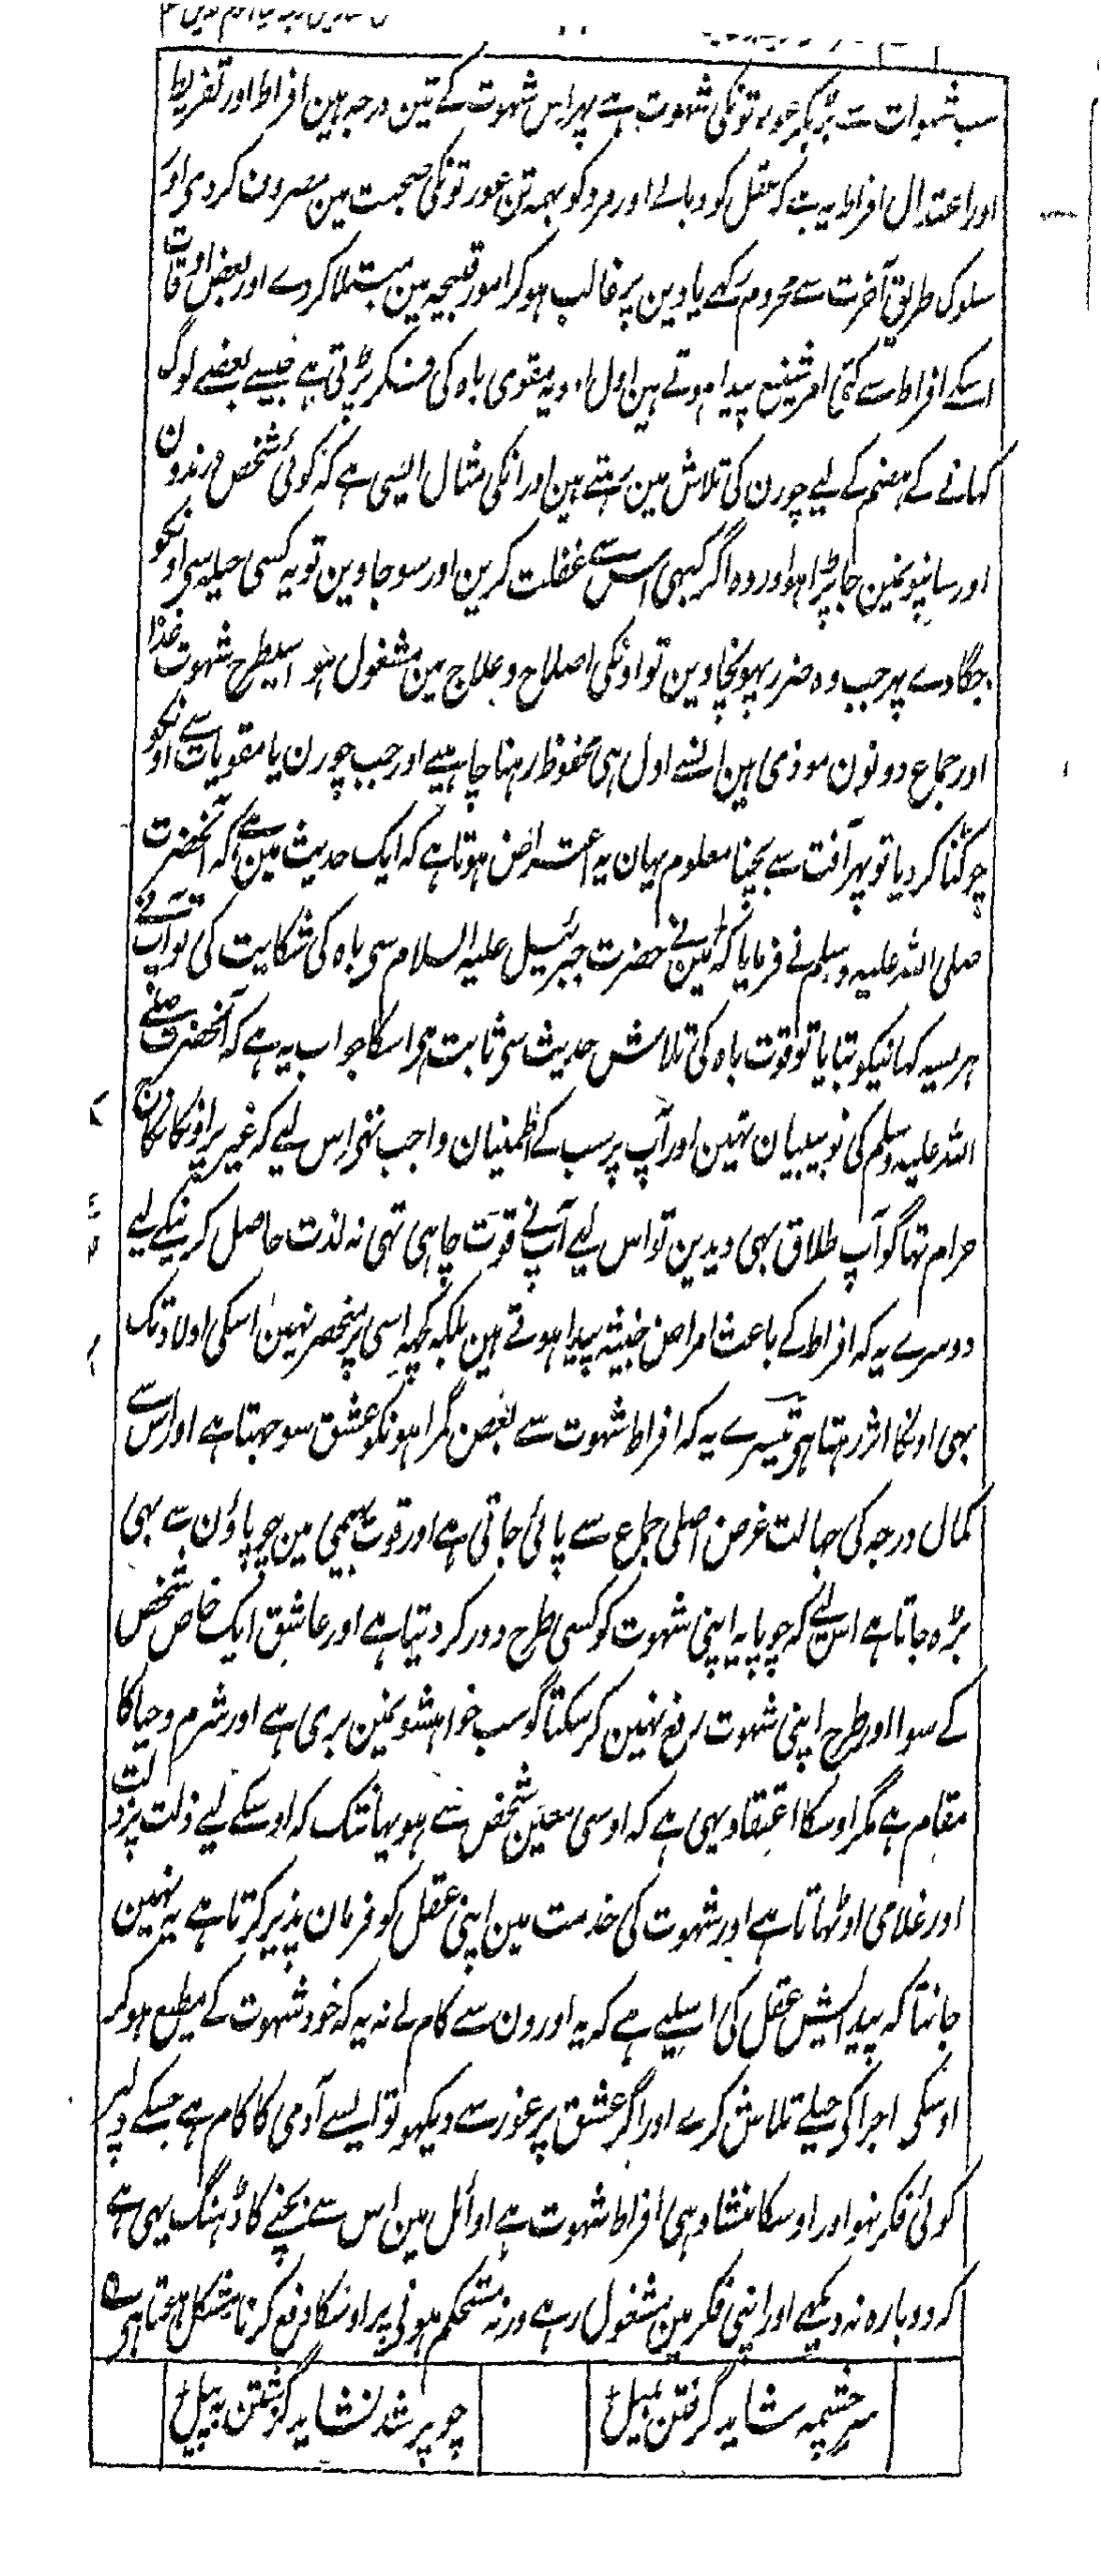 سب شہوات سے بڑہکر عورتونکی شہوت ہے پہر اس شہوت کے تین درجہ ہین افراط اور تفریط
اور اعتدال افراط یہ ہے کہ عقل کو دبالے اور مرد کو ہمہ تن عورتونکی صحبت مین مصروف کر دی اور
سلوک طریق آخرت سے محروم رکھے یا دین پر غالب ہو کر امور قبیحہ مین مبتلا کر دے اور بعض اوقات
اسکے افراط سے کئی امر شنیع پیدا ہوتے ہین اول ادویہ مقوی باہ کی فکر پڑتی ہے جیسے بعضے لوگ
کہانے کے ہضم کے لیے چورن کی تلاش مین رہتے ہین اور انکی مثال ایسی ہے کہ کوئی شخص درندون
اور سانپونمین جا پڑا ہو اور وہ اگر کبہی اس سے غفلت کرین اور سو جاوین تو یہ کسی حیلہ سی اونکو
جگا دے پہر جب وہ ضرر پہونچاوین تو اونکی اصلاح و علاج مین مشغول ہو اسیطرح شہوت غذا
اور جماع دونون موذی ہین انسے اول ہی محفوظ رہنا چاہیے اور جب چورن یا مقویات سے اونکو
چوکنا کر دیا تو پہر آفت سے بچنا معلوم یہان یہ اعتراض ہوتا ہے کہ ایک حدیث مین ہے کہ آنحضرت
صلی اللہ علیہ وسلم نے فرمایا کہ مینے حضرت جبرئیل علیہ السلام سی باہ کی شکایت کی تو آپنے
ہریسہ کہانیکو بتایا تو قوت باہ کی تلاش حدیث سی ثابت ہی اسکا جواب یہ ہے کہ آنحضرت صلے
اللہ علیہ وسلم کی نو بیبیان تہین اور آپ پر سب کے اطمنیان واجب تہی اس لیے کہ غیر پر اونکا نکاح
حرام تہا گو آپ طلاق بہی دیدین تو اس لیے آپنے قوت چاہی تہی نہ لذت حاصل کرنیکے لیے
دوسرے یہ کہ افراط کے باعث امراض خبیثہ پیدا ہوتے ہین بلکہ کچہہ اسی پر منحصر نہین اسکی اولاد تک
بہی اونکا اثر رہتا ہی تیسرے یہ کہ افراط شہوت سے بعض گمراہونکو عشق سوجہتا ہے اور اس سے
کمال درجہ کی جہالت غرض اصلی جماع سے پائی جاتی ہے اور قوت بہیمی مین چوپاؤن سے بہی
بڑہ جاتا ہے اس لیے کہ چوپایہ اپنی شہوت کو کسی طرح دور کر دیتا ہے اور عاشق ایک خاص شخص
کے سوا اور طرح اپنی شہوت رفع نہین کر سکتا گو سب خواہشونمین بری ہے اور شرم و حیا کا
مقام ہے مگر اوسکا اعتقاد یہی ہے کہ اوسی معین شخص سے ہو یہانتک کہ اوسکے لیے ذلت پر ذلت
اور غلامی اوٹھاتا ہے اور شہوت کی خدمت مین اپنی عقل کو فرمان پذیر کرتا ہے یہ نہین
جانتا کہ پیدایش عقل کی اسلیے ہے کہ یہ اورون سے کام لے نہ یہ کہ خود شہوت کے مطیع ہو کر
اوسکی اجرا کی حیلے تلاش کرے اور اگر عشق پر غور سے دیکہو تو ایسے آدمی کا کام ہے جسکے دلپر
کوئی فکر نہو اور اوسکا منشا وہی افراط شہوت ہے اوائل مین اس سے بچنے کا ڈہنگ یہی ہے
کہ دوبارہ نہ دیکہے اور اپنی فکر مین مشغول رہے ورنہ مستحکم ہونی پر اوسکا دفع کرنا مشکل ہوتا ہی
سرچشمہ شاید گرفتن بمیل چو پر شد نشاید گزشتن بہ پیل